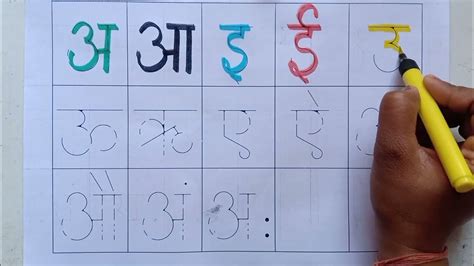 अ आ इ ई उ
ऊ ऋ ए ऐ
औ अं अः